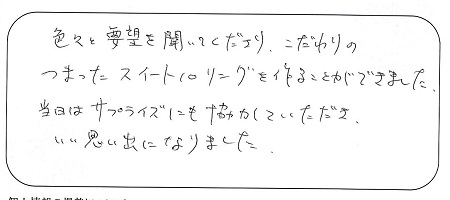 色々と要望を聞いてくださり、こだわりの
つまったスイート10リングを作ることができました。
当日はサプライズにも協力していただき、
いい思い出になりました。